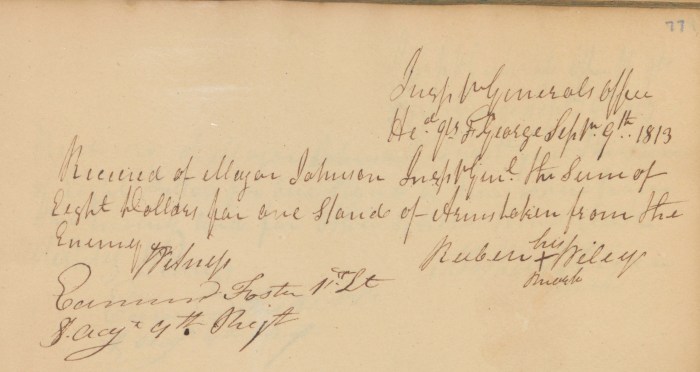 77
Insp r Generals office
Hd. qrs Ft George Septr. 9th. 1813
Received of Major Johnson Insp r Genl. the Sum of
Eight Dollars for one Stand of Arms taken from the
Enemy
Witness
Ruben his Wiley
X
mark
Edmund Foster 1st Lt
& adjt 9th Regt